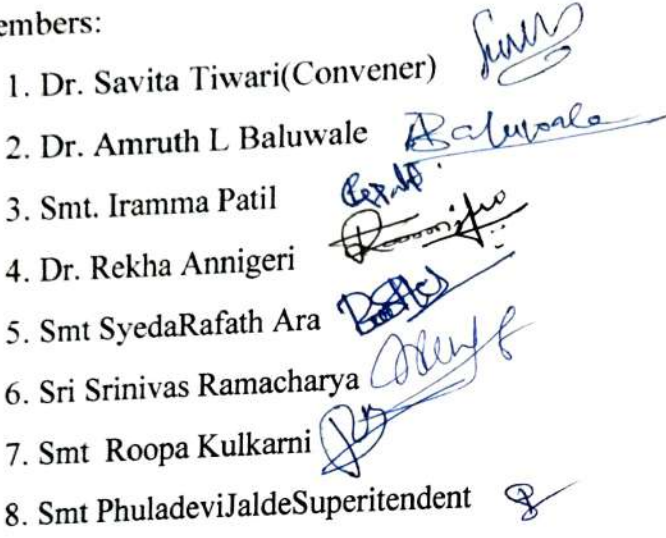 embers:
1. Dr. Savita Tiwari(Convener)
2. Dr. Amruth L Baluwale ABaluwale
3. Smt. Iramma Patil
4. Dr. Rekha Annigeri
5. Smt SyedaRafath Ara
6. Sri Srinivas Ramacharya
7. Smt Roopa Kulkarni
8. Smt PhuladeviJaldeSuperitendent